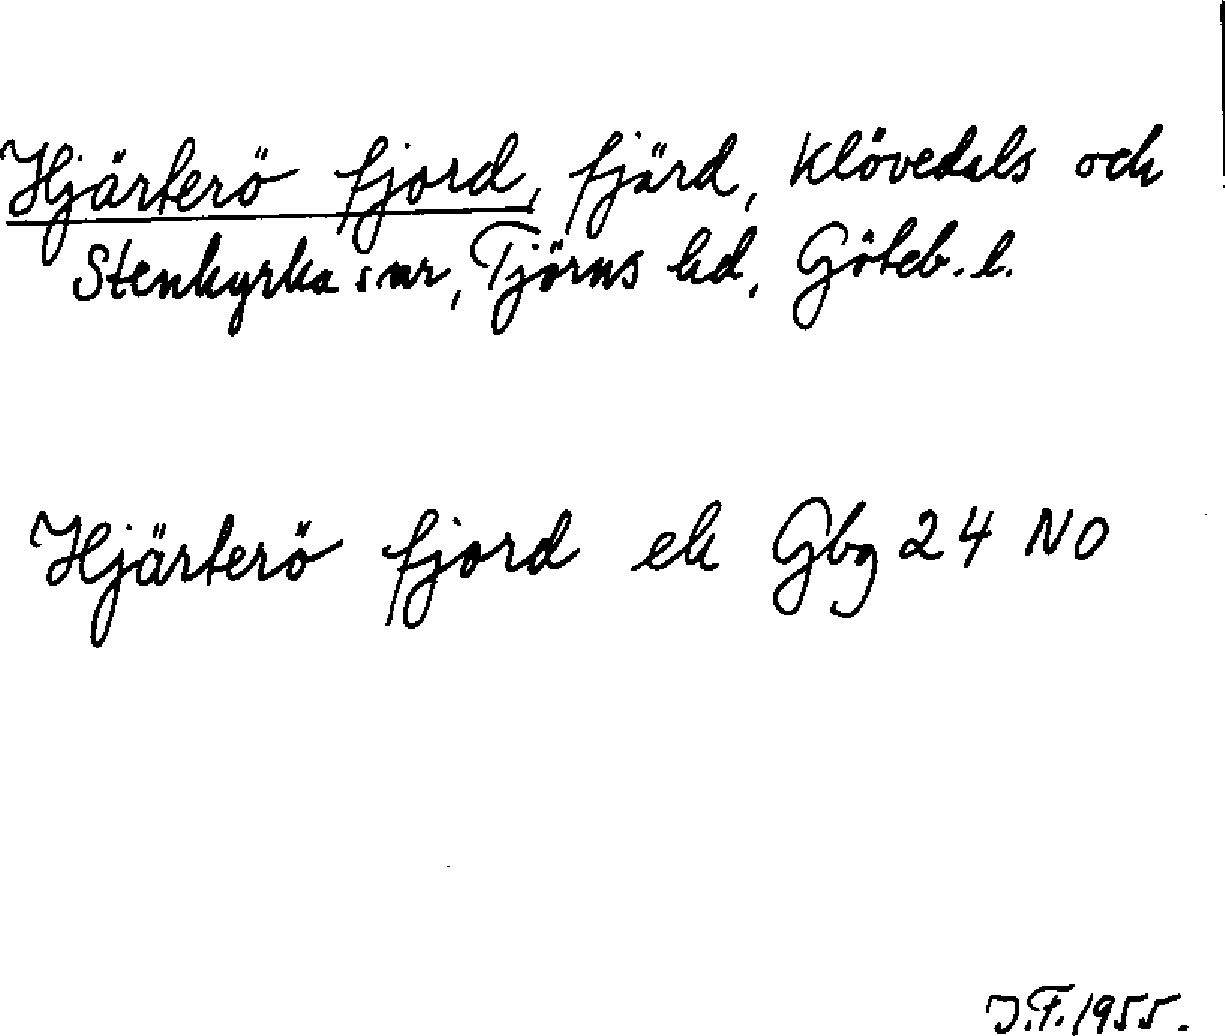 Hjärterö fjord, fjärd, Klövedals och
Stenkyrka snr, Tjörns hd, Göteb. l.
Hjärterö fjord ek Gbg 24 NO
J.F. 1955.